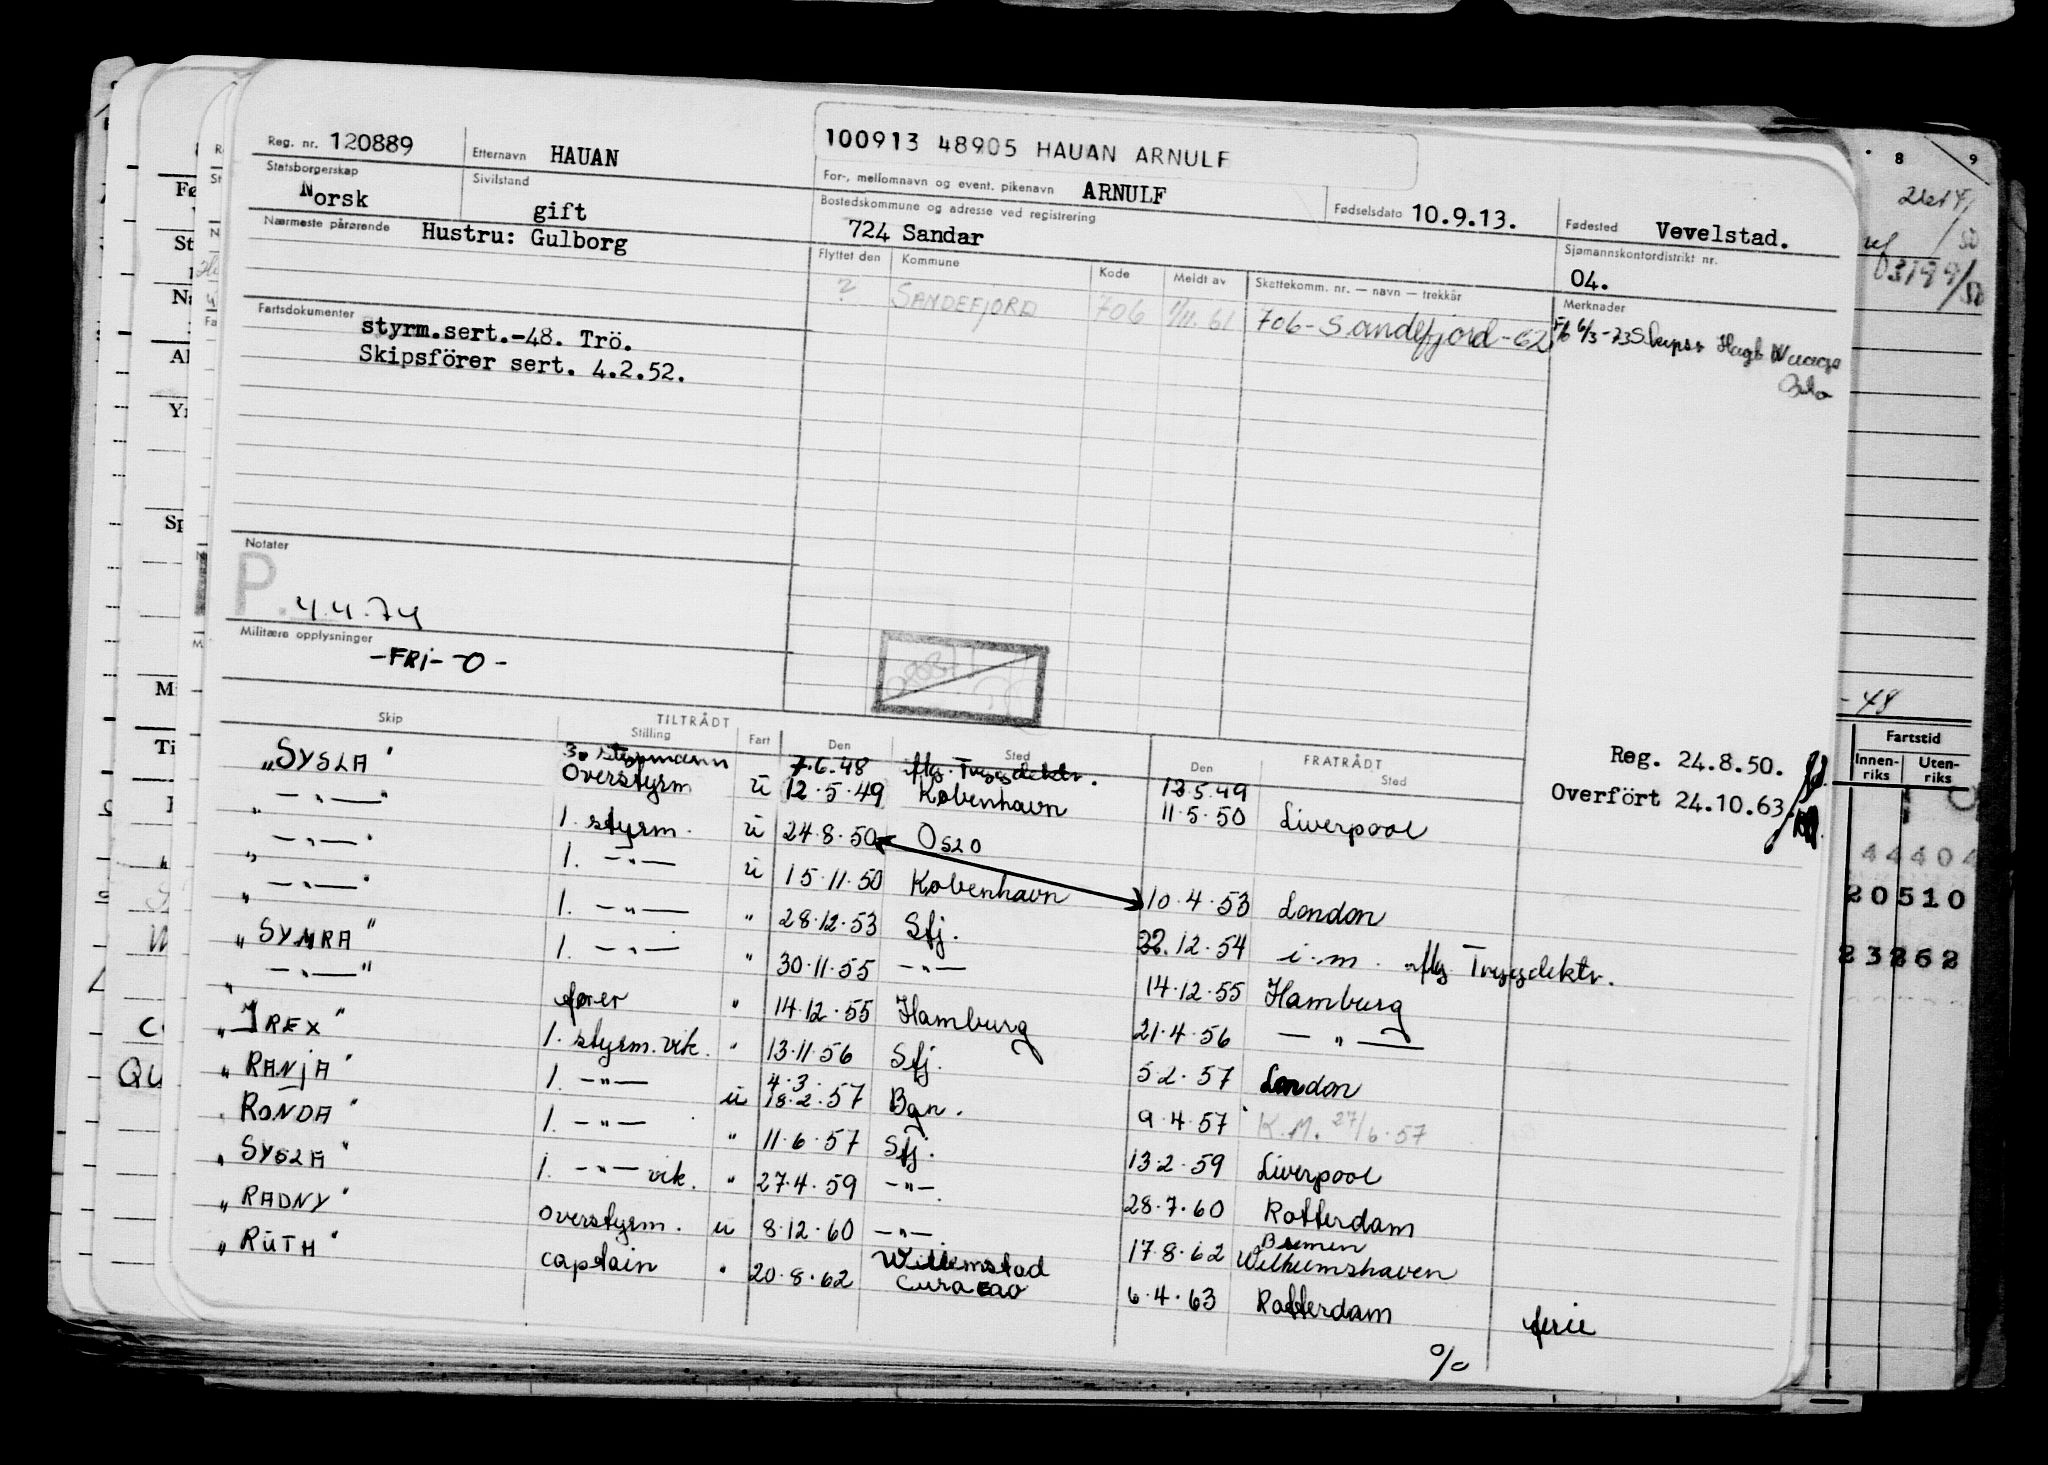 Reg. nr. 120889 Etternavn HAUAN 100913 48905 HAUAN ARNULF
Statsborgerskap Norsk Sivilstand gift For-, mellomnavn og event. pikenavn ARNULF Fødselsdato 10.9.13. Fødested Vevelstad.
Nærmeste pårørende Hustru: Gulborg Bostedskommune og adresse ved registrering 724 Sandar Sjømannskontordistrikt nr. 04.
Flyttet den Kommune Kode Meldt av Skattekomm. nr. — navn — trekkår Merknader
? SANDEFJORD 706 1/11.61 706-Sandefjord-62 Fb 6/3-73
Oslo
Fartsdokumenter styrm.sert.-48. Trö.
Skipsförer sert. 4.2.52.
Notater
P. 4.4.74
Militære opplysninger
-FRI-O-
Skip TILTRÅDT Stilling Fart Den Sted FRATRÅDT Den Sted
Reg. 24.8.50.
Overfört 24.10.63
"SYSLA" 3. styrmann 7.6.48 flg. Trygdektr. 12.5.49
" —"—" Overstyrm ü 12.5.49 København 11.5.50 Liverpool
" —"—" 1. styrm. ü 24.8.50 OSLO
" —"—" 1. —"— ü 15.11.50 København 10.4.53 London
"SYMRA" 1. —"— " 28.12.53 Sfj. 22.12.54 i.m. flg Trygdektr.
" —"—" 1. —"— " 30.11.55 —"— 14.12.55 Hamburg
fører " 14.12.55 Hamburg 21.4.56 —"—
"IREX" 1. styrm. vik. " 13.11.56 Sfj. 5.2.57 London
"RANJA" 1. —"— ü 4.3. 18.2.57 Bgn. 9.4.57 K.M. 27/6.57
"RONDA" 1. —"— " 11.6.57 Sfj. 13.2.59 Liverpool
"SYSLA" 1. —"— vik. " 27.4.59 —"— 28.7.60 Rotterdam
"RADNY" Overstyrm. ü 8.12.60 —"— 17.8.62 Bremen Wilhelmshaven
"RUTH" captain " 20.8.62 Willemstad Curacao 6.4.63 Rotterdam ferie
%
8 9
-48
Fartstid
Innen-riks Uten-riks
44404
20510
23262